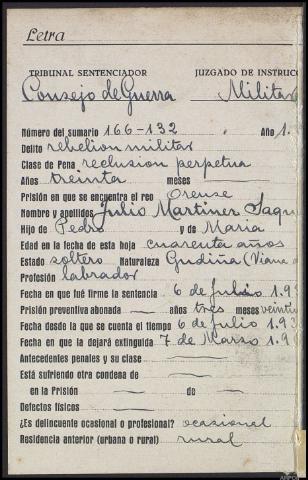 Letra
TRIBUNAL SENTENCIADOR JUZGADO DE INSTRUC
Consejo de Guerra Militar
Número del sumario 166-132 Año 1.
Delito rebelion militar
Clase de Pena reclusion perpetua
Años treinta meses
Prisión en que se encuentra el reo Orense
Nombre y apellidos Julio Martinez
Hijo de Pedro y de Maria
Edad en la fecha de esta hoja cuarenta años
Estado soltero Naturaleza Gudiña (Viana d
Profesión labrador
Fecha en que fué firme la sentencia 6 de Julio 1.93
Prisión preventiva abonada — años tres meses veinti
Fecha desde la que se cuenta el tiempo 6 de julio 1.93
Fecha en que la dejará extinguida 7 de Marzo 1.9
Antecedentes penales y su clase —
Está sufriendo otra condena de —
en la Prisión — de —
Defectos físicos —
¿Es delincuente ocasional o profesional? ocasional
Residencia anterior (urbana o rural) rural